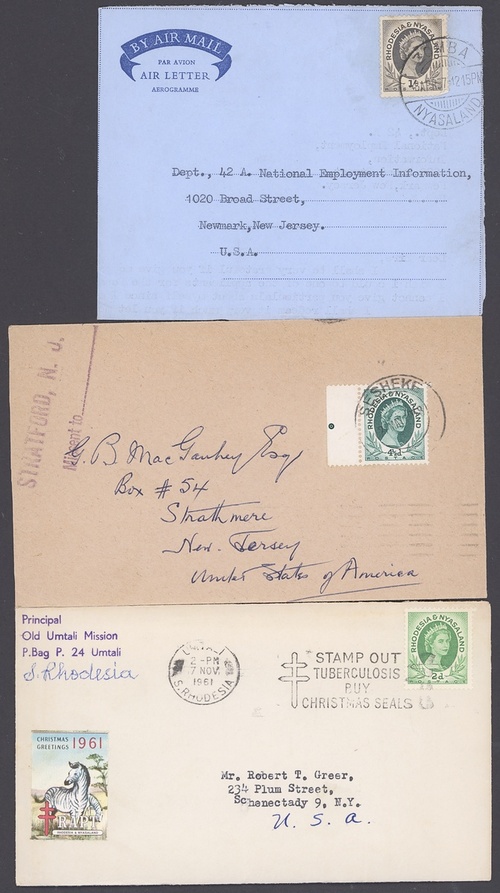 BY AIR MAIL
PAR AVION
AIR LETTER
AEROGRAMME
RHODESIA & NYASALAND
1/-
BA
12 15PM
NYASALAND
Dept., 42 A. National Employment Information,
1020 Broad Street,
Newmark,New Jersey.
U.S.A.
STRATFORD, N. J.
Missent to
SESHEKE
RHODESIA & NYASALAND
4½d
B MacGauhey Esq
Box # 54
Strathmere
New Jersey
United States of America
Principal
Old Umtali Mission
P.Bag P. 24 Umtali
S. Rhodesia
2 - PM
7 NOV.
1961
S. RHODESIA
STAMP OUT
TUBERCULOSIS
BUY
CHRISTMAS SEALS
RHODESIA & NYASALAND
2d
CHRISTMAS
GREETINGS 1961
RHODESIA & NYASALAND
Mr. Robert T. Greer,
234 Plum Street,
Schenectady 9, N.Y.
U. S. A.